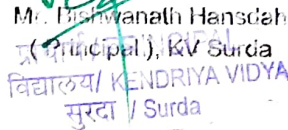 Mr. Bishwanath Hansdah
(Principal), KV Surda
प्राचार्य/ PRINCIPAL
विद्यालय/ KENDRIYA VIDYA
सुरदा / Surda